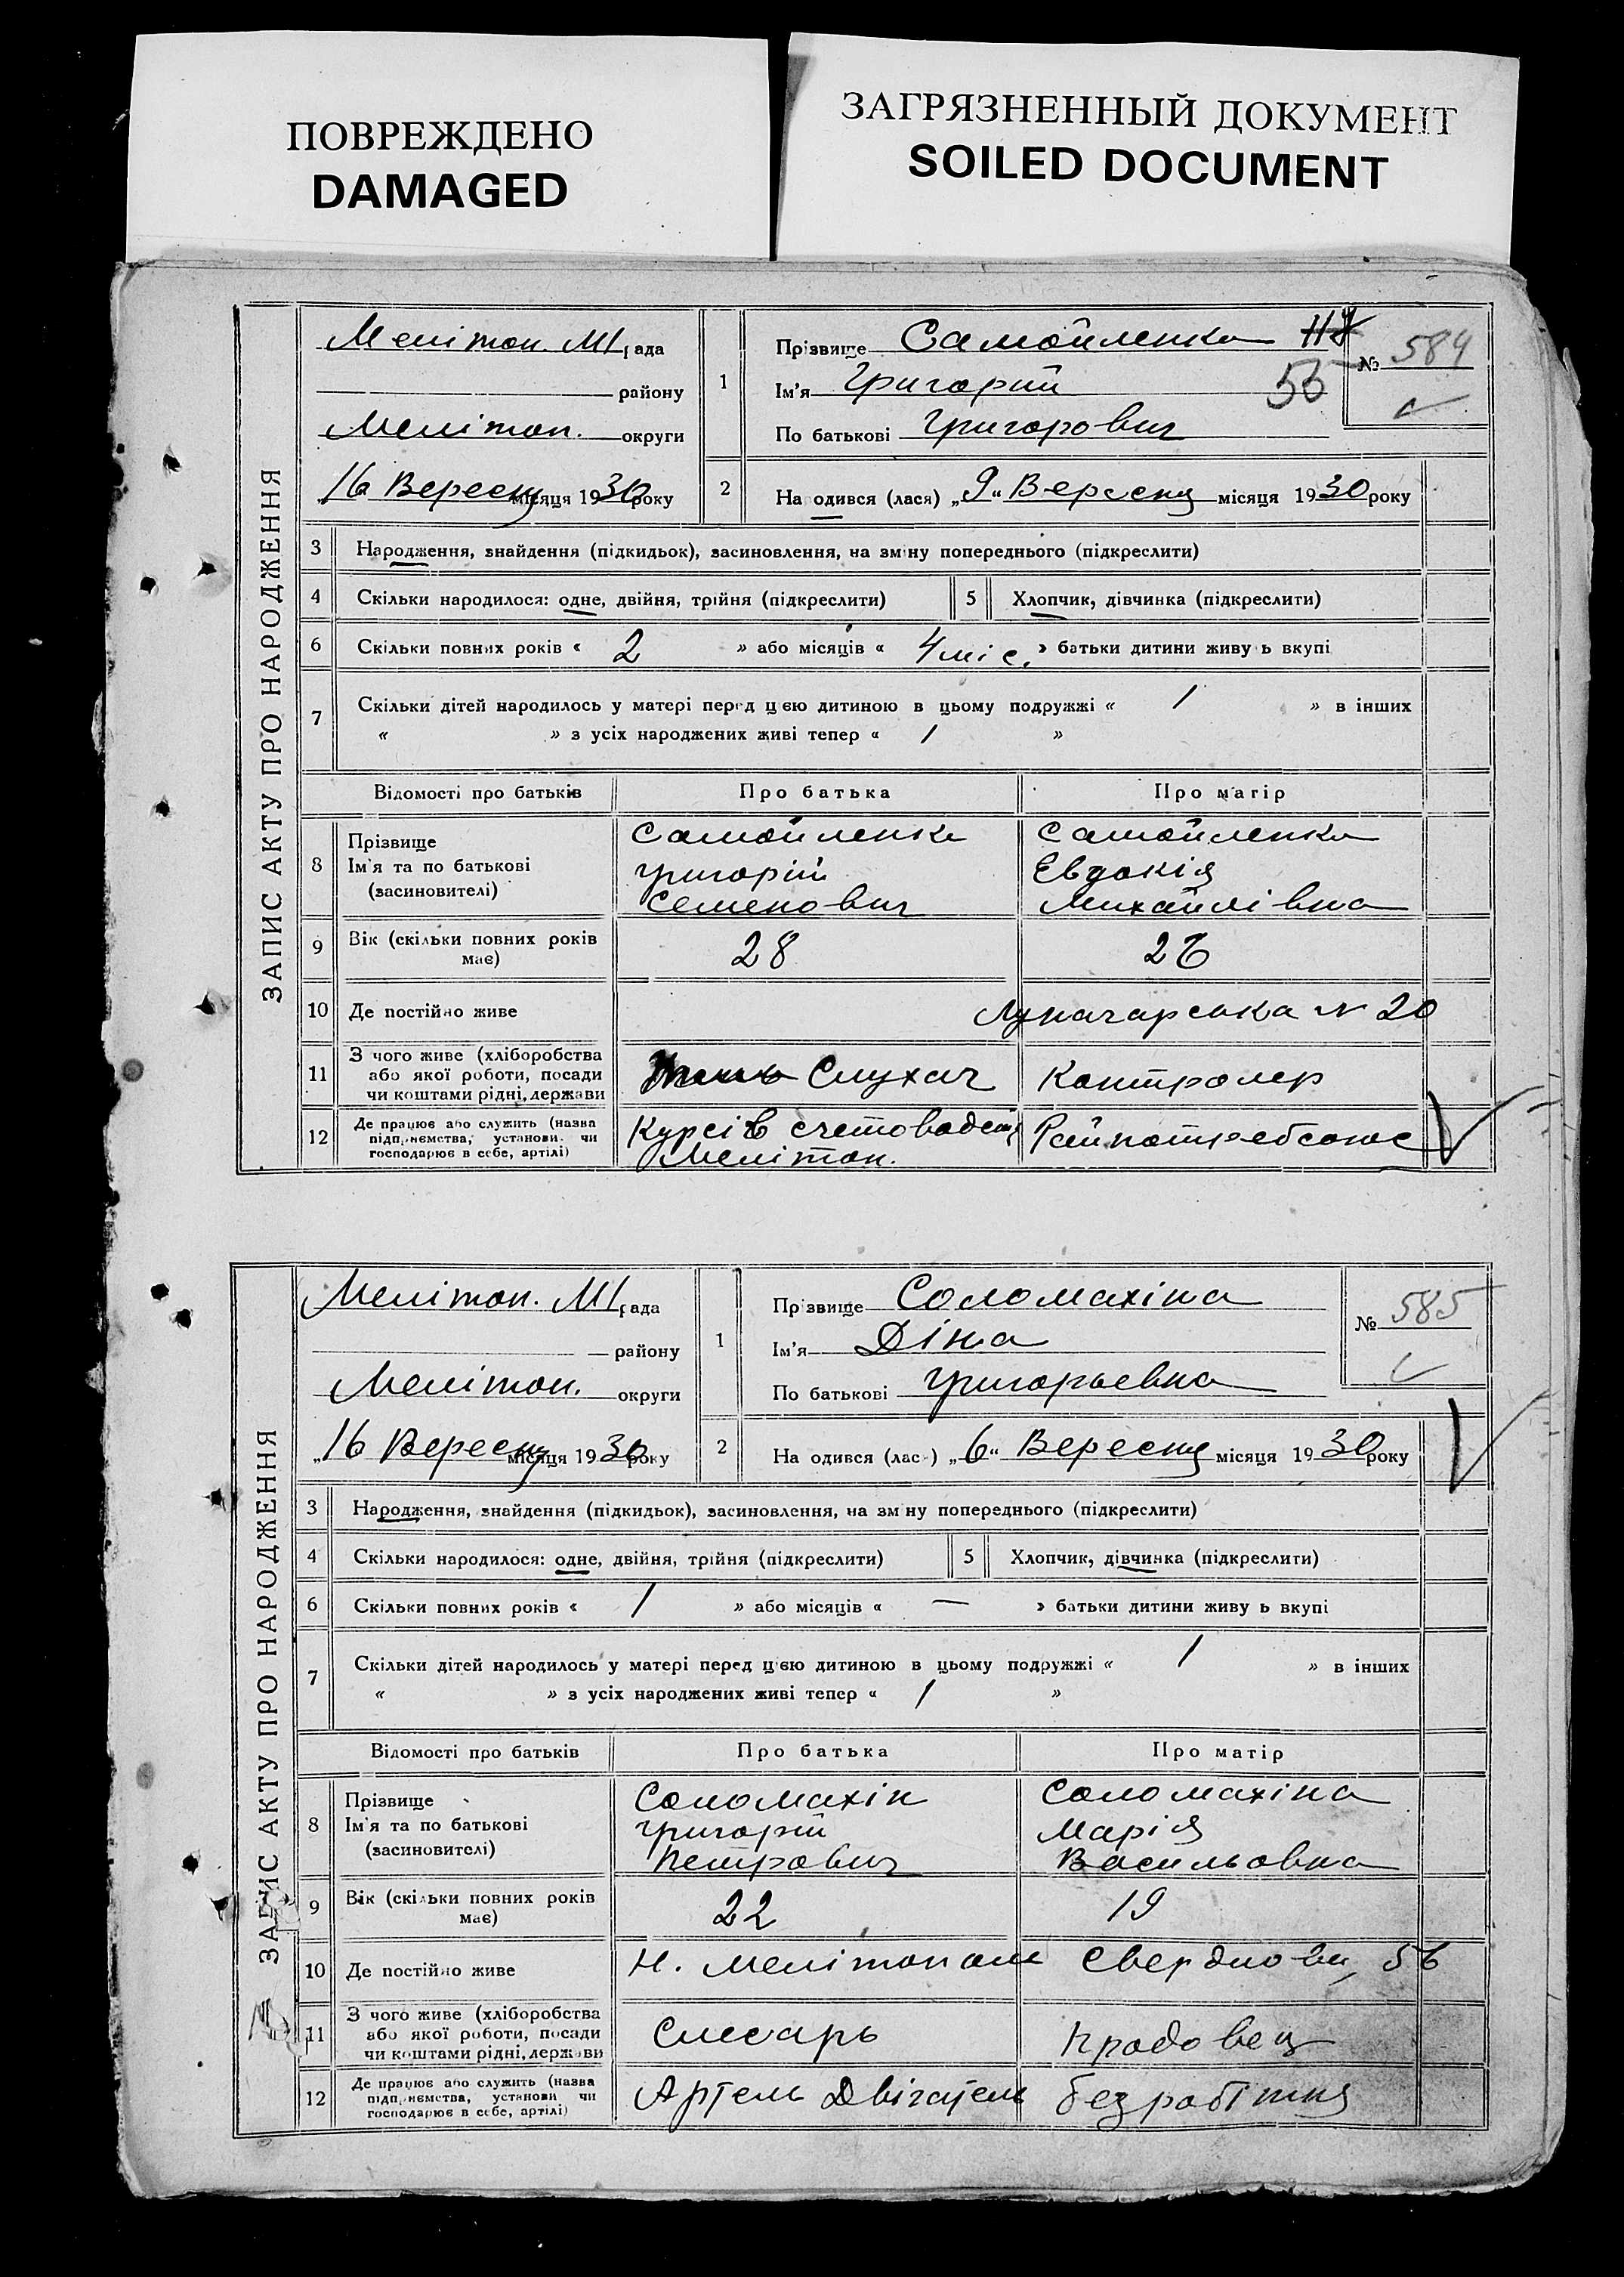 ПОВРЕЖДЕНО
DAMAGED
ЗАГРЯЗНЕННЫЙ ДОКУМЕНТ
SOILED DOCUMENT
ЗАПИС АКТУ ПРО НАРОДЖЕННЯ
Мелітоп. М/рада
району
Мелітоп. округи
16 Вересня місяця 1930 року
1
Прізвище Самойленко
Ім'я Григорий 56
По батькові Григорович
№ 584
2 Народився (лася) „9“ Вересня місяця 1930 року
3 Народження, знайдення (підкидьок), засиновлення, на зміну попереднього (підкреслити)
4 Скільки народилося: одне, двійня, трійня (підкреслити) 5 Хлопчик, дівчинка (підкреслити)
6 Скільки повних років « 2 » або місяців « 4 міс. » батьки дитини живуть вкупі
7 Скільки дітей народилось у матері перед цією дитиною в цьому подружжі « 1 » в інших
« » з усіх народжених живі тепер « 1 »
Відомості про батьків Про батька Про матір
8 Прізвище Самойленко Самойленко
Ім'я та по батькові Григорій Евдокія
(засиновителі) Семенович Михайлівна
9 Вік (скільки повних років має) 28 26
10 Де постійно живе Луначарська № 20
11 З чого живе (хліборобства або якої роботи, посади чи коштами рідні, держави Слухач Контролер
12 Де працює або служить (назва підприємства, установи чи господарює в себе, артілі) Курсів счетоводств Мелітоп. Райпотребсоюс
ЗАПИС АКТУ ПРО НАРОДЖЕННЯ
Мелітоп. М/рада
району
Мелітоп. округи
„16 Вересня місяця 1930 року
1
Прізвище Соломахіна
Ім'я Діна
По батькові Григорьевна
№ 585
2 Народився (лася) „6“ Вересня місяця 1930 року
3 Народження, знайдення (підкидьок), засиновлення, на зміну попереднього (підкреслити)
4 Скільки народилося: одне, двійня, трійня (підкреслити) 5 Хлопчик, дівчинка (підкреслити)
6 Скільки повних років « 1 » або місяців « — » батьки дитини живуть вкупі
7 Скільки дітей народилось у матері перед цією дитиною в цьому подружжі « 1 » в інших
« » з усіх народжених живі тепер « 1 »
Відомості про батьків Про батька Про матір
8 Прізвище Соломахін Соломахіна
Ім'я та по батькові Григорій Марія
(засиновителі) Петрович Васильовна
9 Вік (скільки повних років має) 22 19
10 Де постійно живе Н. Мелітополь Свердлова, 56
11 З чого живе (хліборобства або якої роботи, посади чи коштами рідні, держави Слесарь
12 Де працює або служить (назва підприємства, установи чи господарює в себе, артілі) Артель Двігатель безробітня